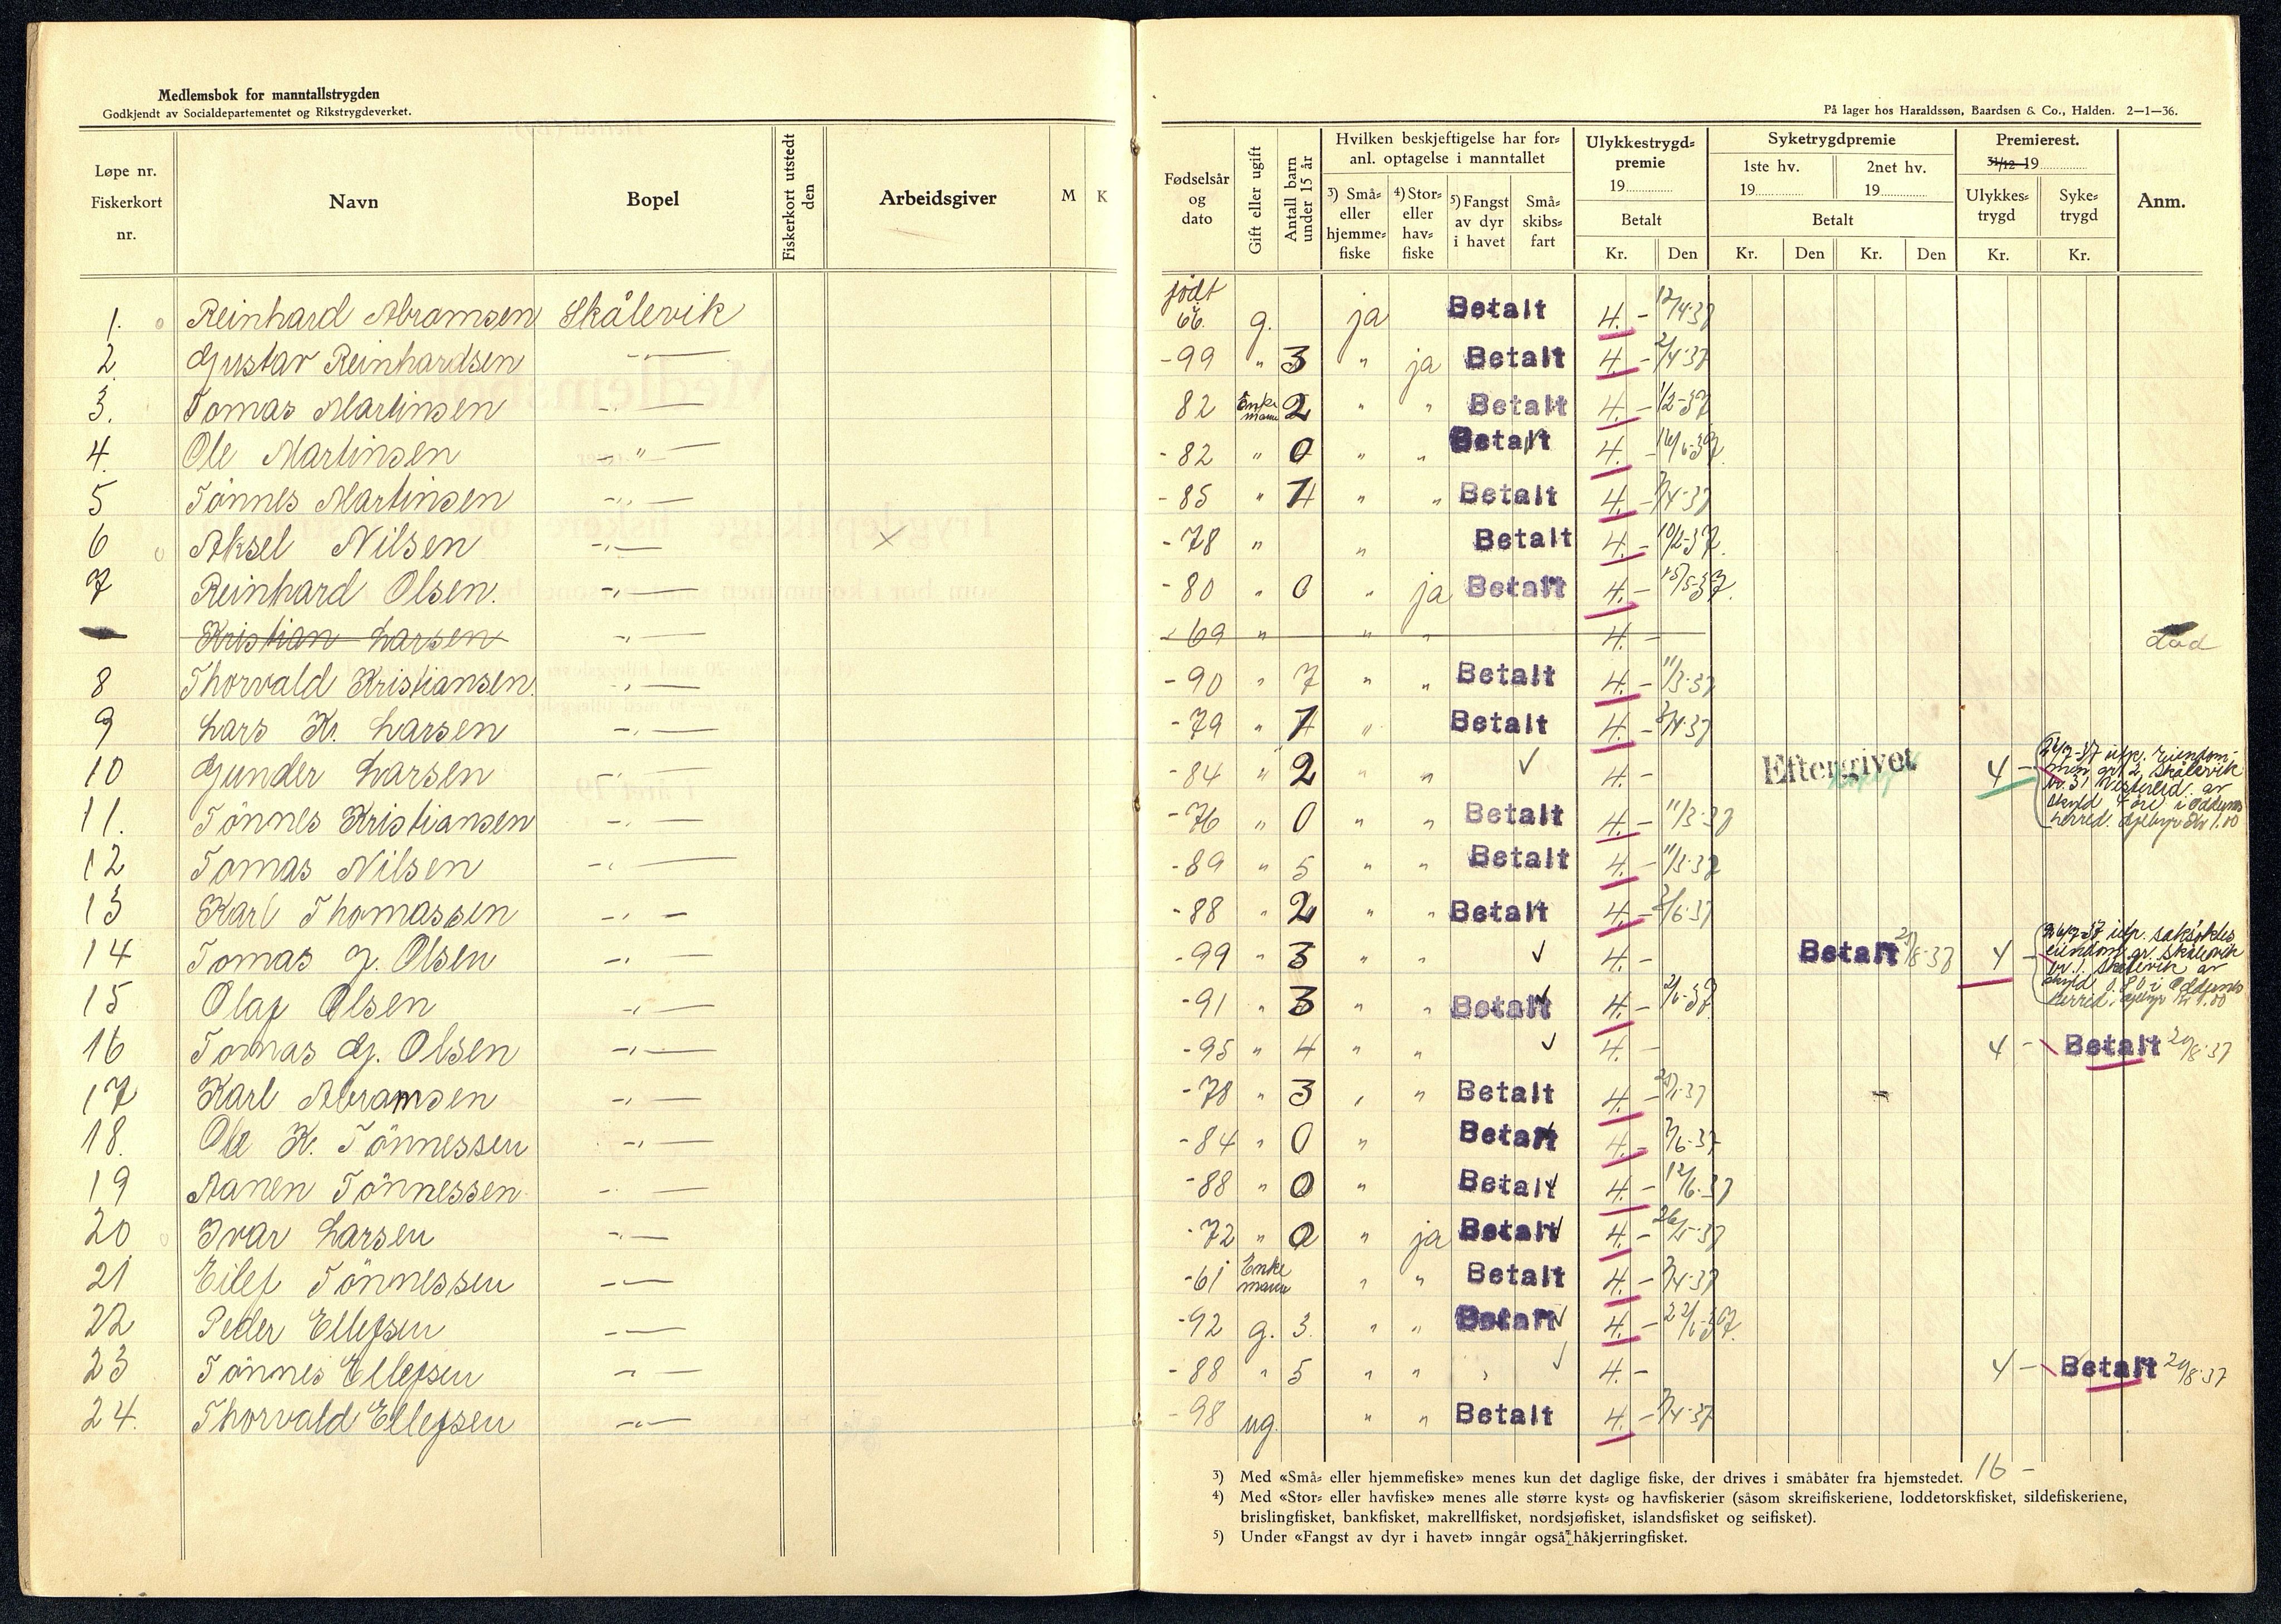 Medlemsbok for manntallstrygden
Godkjendt av Socialdepartementet og Rikstrygdeverket.
På lager hos Haraldssøn, Baardsen & Co., Halden. 2—1—36.
Løpe nr.
Fiskerkort
nr.
Navn
Bopel
Fiskerkort utstedt
den
Arbeidsgiver
M
K
Fødselsår
og
dato
Gift eller ugift
Antall barn
under 15 år
Hvilken beskjeftigelse har for-
anl. optagelse i manntallet
3) Små-
eller
hjemme-
fiske
4) Stor-
eller
hav-
fiske
5) Fangst
av dyr
i havet
Små-
skibs-
fart
Ulykkestrygd-
premie
19
Betalt
Kr.
Den
Syketrygdpremie
1ste hv.
19
2net hv.
19
Betalt
Kr.
Den
Kr.
Den
Premierest.
31/12 19
Ulykkes-
trygd
Syke-
trygd
Kr.
Kr.
Anm.
født
1. Reinhard Abramsen Skålevik 66. g. ja Betalt 4. - 12/4-37
2. Gustav Reinhardsen -"- -99 " 3 " ja Betalt 4. - 2/4-37
3. Tomas Martinsen -"- 82 Enke mann 2 " " Betalt 4. - 1/2-37
4. Ole Martinsen -"- -82 " 0 " " Betalt 4. - 16/6-37.
5 Tönnes Martinsen -"- -85 " " " Betalt 4. - 7/4-37
6 Aksel Nilsen -"- x -78 " " Betalt 4. - 10/2-37.
7 Reinhard Olsen. -"- -80 " 0 " ja Betalt 4. - 15/5-37.
Kristian Larsen -"- -69 " " " 4. - död
8 Thorvald Kristiansen. -"- -90 " 7 " " Betalt 4. - 11/3-37
9 Lars Kr. Larsen -"- -79 " " Betalt 4. - 37
10 Gunder Larsen -"- -84 " 2 " " ✓ 4. - Eftergivet 4 -
Skålevik
skyld 4 öre i Oddernes
herred. Gjebyr Kr 1.00
11. Tönnes Kristiansen -"- -76 " 0 " " Betalt 4. - 11/3-37
12 Tomas Nilsen -"- -89 " 5 " " Betalt 4. - 11/3-37
13 Karl Thomassen -"- -88 " 2 " " Betalt 4. - 2/6-37
14 Tomas J. Olsen -"- -99 " 3 " " ✓ 4. - Betalt 8-37 4 -
eiendom gr. Skålevik
br. 1. Skålevik av
skyld 0.80 i Oddernes
herred. Gjebyr Kr 1.00
15 Olaf Olsen -"- -91 " 3 " " Betalt 4. - 2/6-37.
16 Tomas G. Olsen -"- -95 " 4 " " ✓ 4. - 4 - Betalt 20/8-37
17 Karl Abramsen -"- -78 " 3 " " Betalt 4. - 37
18. Ole K. Tönnessen -"- -84 " 0 " Betalt 4. - 7/6-37
19 Aanen Tönnessen -"- -88 " 0 " Betalt 4. - 12/6-37
20 Ivar Larsen -"- -72 " 0 " ja Betalt 4. - 26/5-37
21 Eilef Tönnessen -"- -61 Enke mann " " Betalt 4. - 7/4-37
22 Peder Ellefsen -"- -92 g. 3. " " Betalt 4. - 22/6-37.
23 Tönnes Ellefsen -"- -88 " 5 " " " ✓ 4. - 4 - Betalt 20/8-37
24. Thorvald Ellefsen -"- -98 ug. " " Betalt 4. - 7/4-37
16 -
3) Med «Små- eller hjemmefiske» menes kun det daglige fiske, der drives i småbåter fra hjemstedet.
4) Med «Stor- eller havfiske» menes alle større kyst- og havfiskerier (såsom skreifiskeriene, loddetorskfisket, sildefiskeriene,
brislingfisket, bankfisket, makrellfisket, nordsjøfisket, islandsfisket og seifisket).
5) Under «Fangst av dyr i havet» inngår også håkjerringfisket.